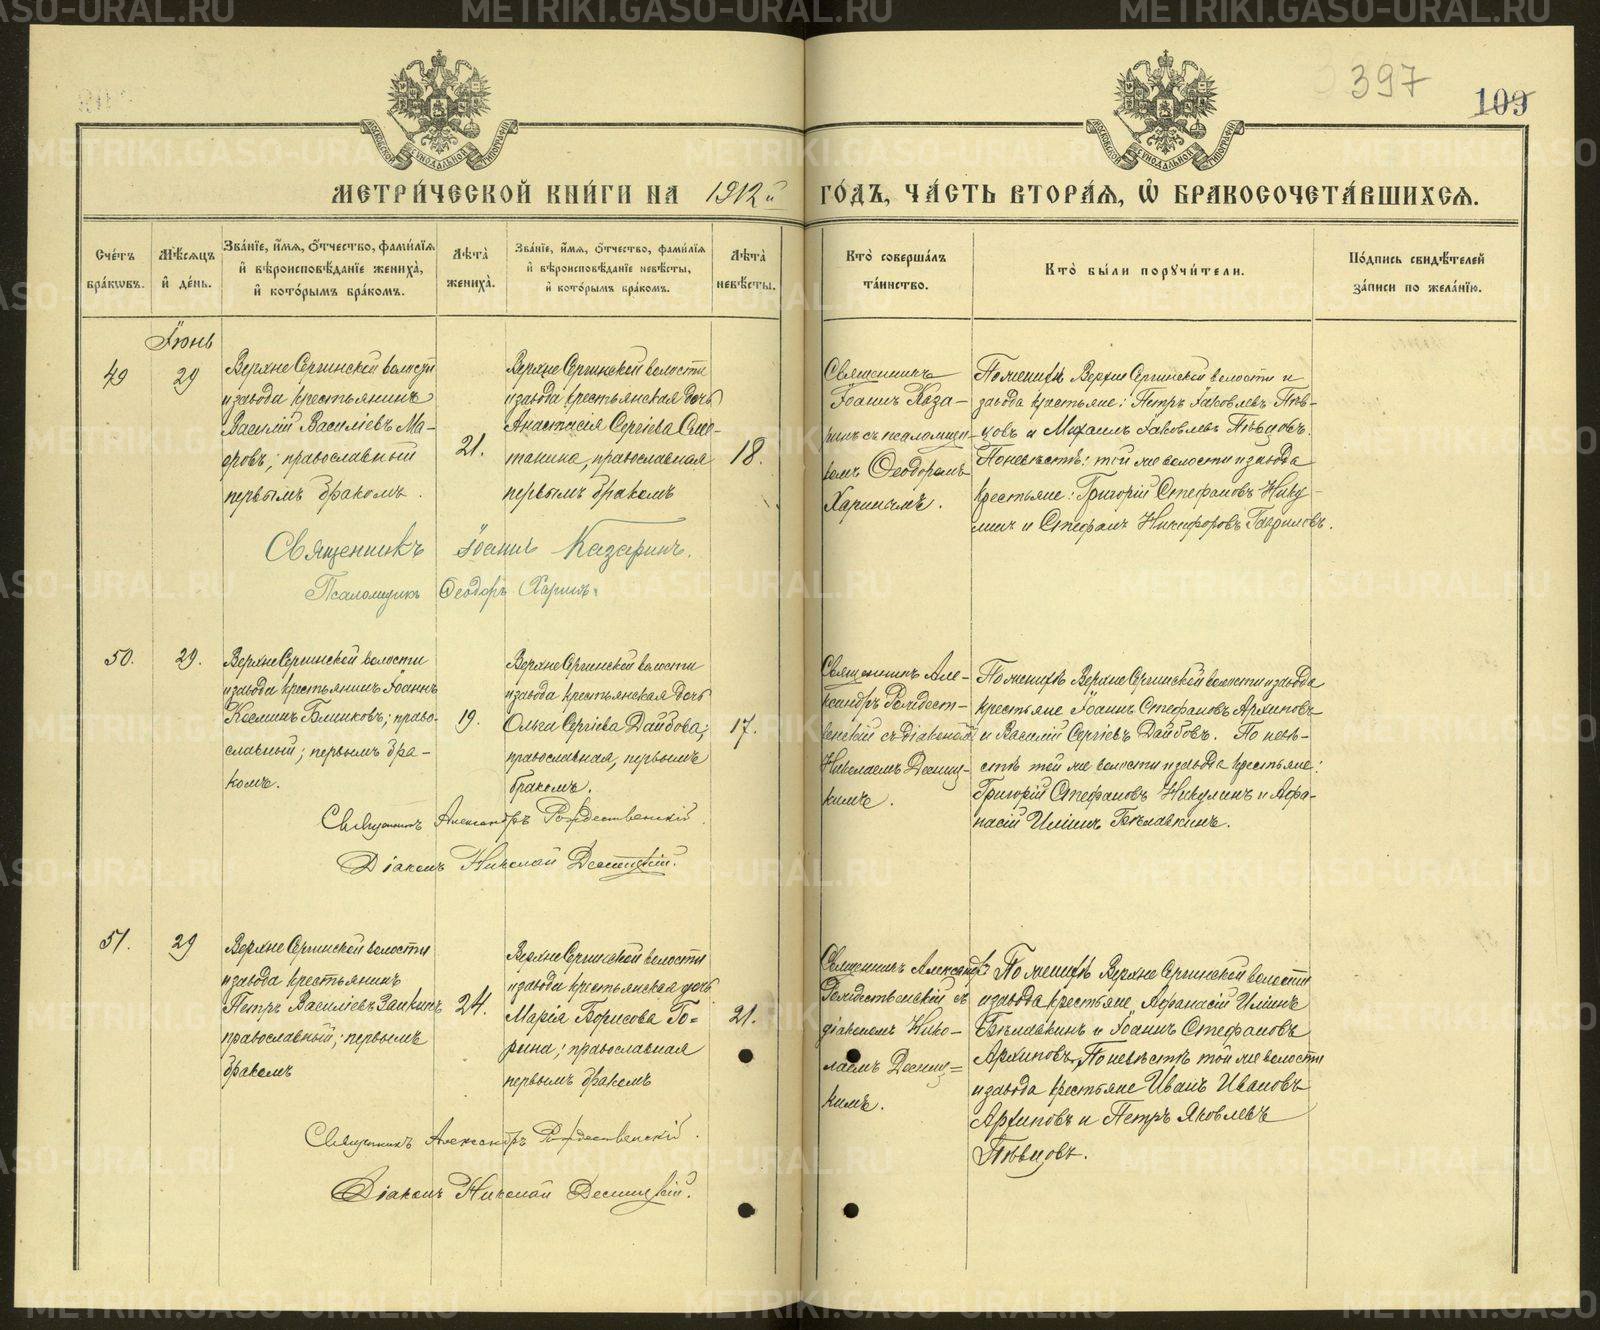 397
109
МЕТРИ́ЧЕСКОЙ КНИ́ГИ НА 1912й ГО́ДЪ, ЧА́СТЬ ВТОРА́Я, Ѡ БРАКОСОЧЕТА́ВШИХСЯ.
Сче́тъ бра́ковъ.
Мѣ́сяцъ и҆ де́нь.
Зва́нїе, и҆́мя, ѻ҆́тчество, фами́лїя и҆ вѣроисповѣ́данїе жениха̀, и҆ кото́рымъ бра́комъ.
Лѣ́та жениха̀.
Зва́нїе, и҆́мя, ѻ҆́тчество, фами́лїя и҆ вѣроисповѣ́данїе невѣ́сты, и҆ кото́рымъ бра́комъ.
Лѣ́та невѣ́сты.
Кто̀ соверша́лъ та́инство.
Кто̀ бы́ли поручи́тели.
По́дпись свидѣ́телей за́писи по жела́нїю.
Іюнь
49
29
Верхне Сергинской волости
и завода крестьянинъ
Василій Василіевъ Ма-
оровъ; православный
первымъ бракомъ.
21.
Верхне Сергинской волости
и завода крестьянская дочь
Анастасія Сергіева Сме-
танина, православная
первымъ бракомъ
18.
Священникъ
Іоаннъ Каза-
ринъ съ псаломщи-
комъ Ѳеодоромъ
Харинымъ.
По женихѣ Верхне Сергинской волости и
завода крестьяне: Петръ Іаковлевъ Пѣв-
цовъ и Михаилъ Іаковлевъ Пѣвцовъ.
По невѣстѣ: той же волости и завода
крестьяне: Григорій Стефановъ Нику-
линъ и Стефанъ Никифоровъ Гавриловъ.
Священникъ Іоаннъ Казаринъ.
Псаломщикъ Ѳеодоръ Харинъ.
50.
29.
Верхне Сергинской волости
и завода крестьянинъ Іоаннъ
Косминъ Блинковъ; право-
славный; первымъ бра-
комъ.
19.
Верхне Сергинской волости
и завода крестьянская дочь
Ольга Сергіева Дайбова;
православная, первымъ
бракомъ.
17.
Священникъ Але-
ксандръ Рождест-
венскій съ діакономъ
Николаемъ Десниц-
кимъ.
По женихѣ Верхне Сергинской волости и завода
крестьяне Іоаннъ Стефановъ Архиповъ
и Василій Сергіевъ Дайбовъ. По невѣ-
стѣ той же волости и завода крестьяне:
Григорій Стефановъ Никулинъ и Афа-
насій Иліинъ Бѣлавкинъ.
Священникъ Александръ Рождественскій.
Діаконъ Николай Десницкій.
51.
29
Верхне Сергинской волости
и завода крестьянинъ
Петръ Василіевъ Заикинъ
православный; первымъ
бракомъ
24.
Верхне Сергинской волости
и завода крестьянская дочь
Марія Борисова Го-
рина; православная
первымъ бракомъ
21.
Священникъ Александръ
Рождественскій съ
діакономъ Нико-
лаемъ Десниц=
кимъ.
По женихѣ Верхне Сергинской волости
и завода крестьяне Афанасій Иліинъ
Бѣлавкинъ и Іоаннъ Стефановъ
Архиповъ, По невѣстѣ той же волости
и завода крестьяне Иванъ Ивановъ
Архиповъ и Петръ Яковлевъ
Пѣвцовъ.
Священникъ Александръ Рождественскій.
Діаконъ Николай Десницкій.